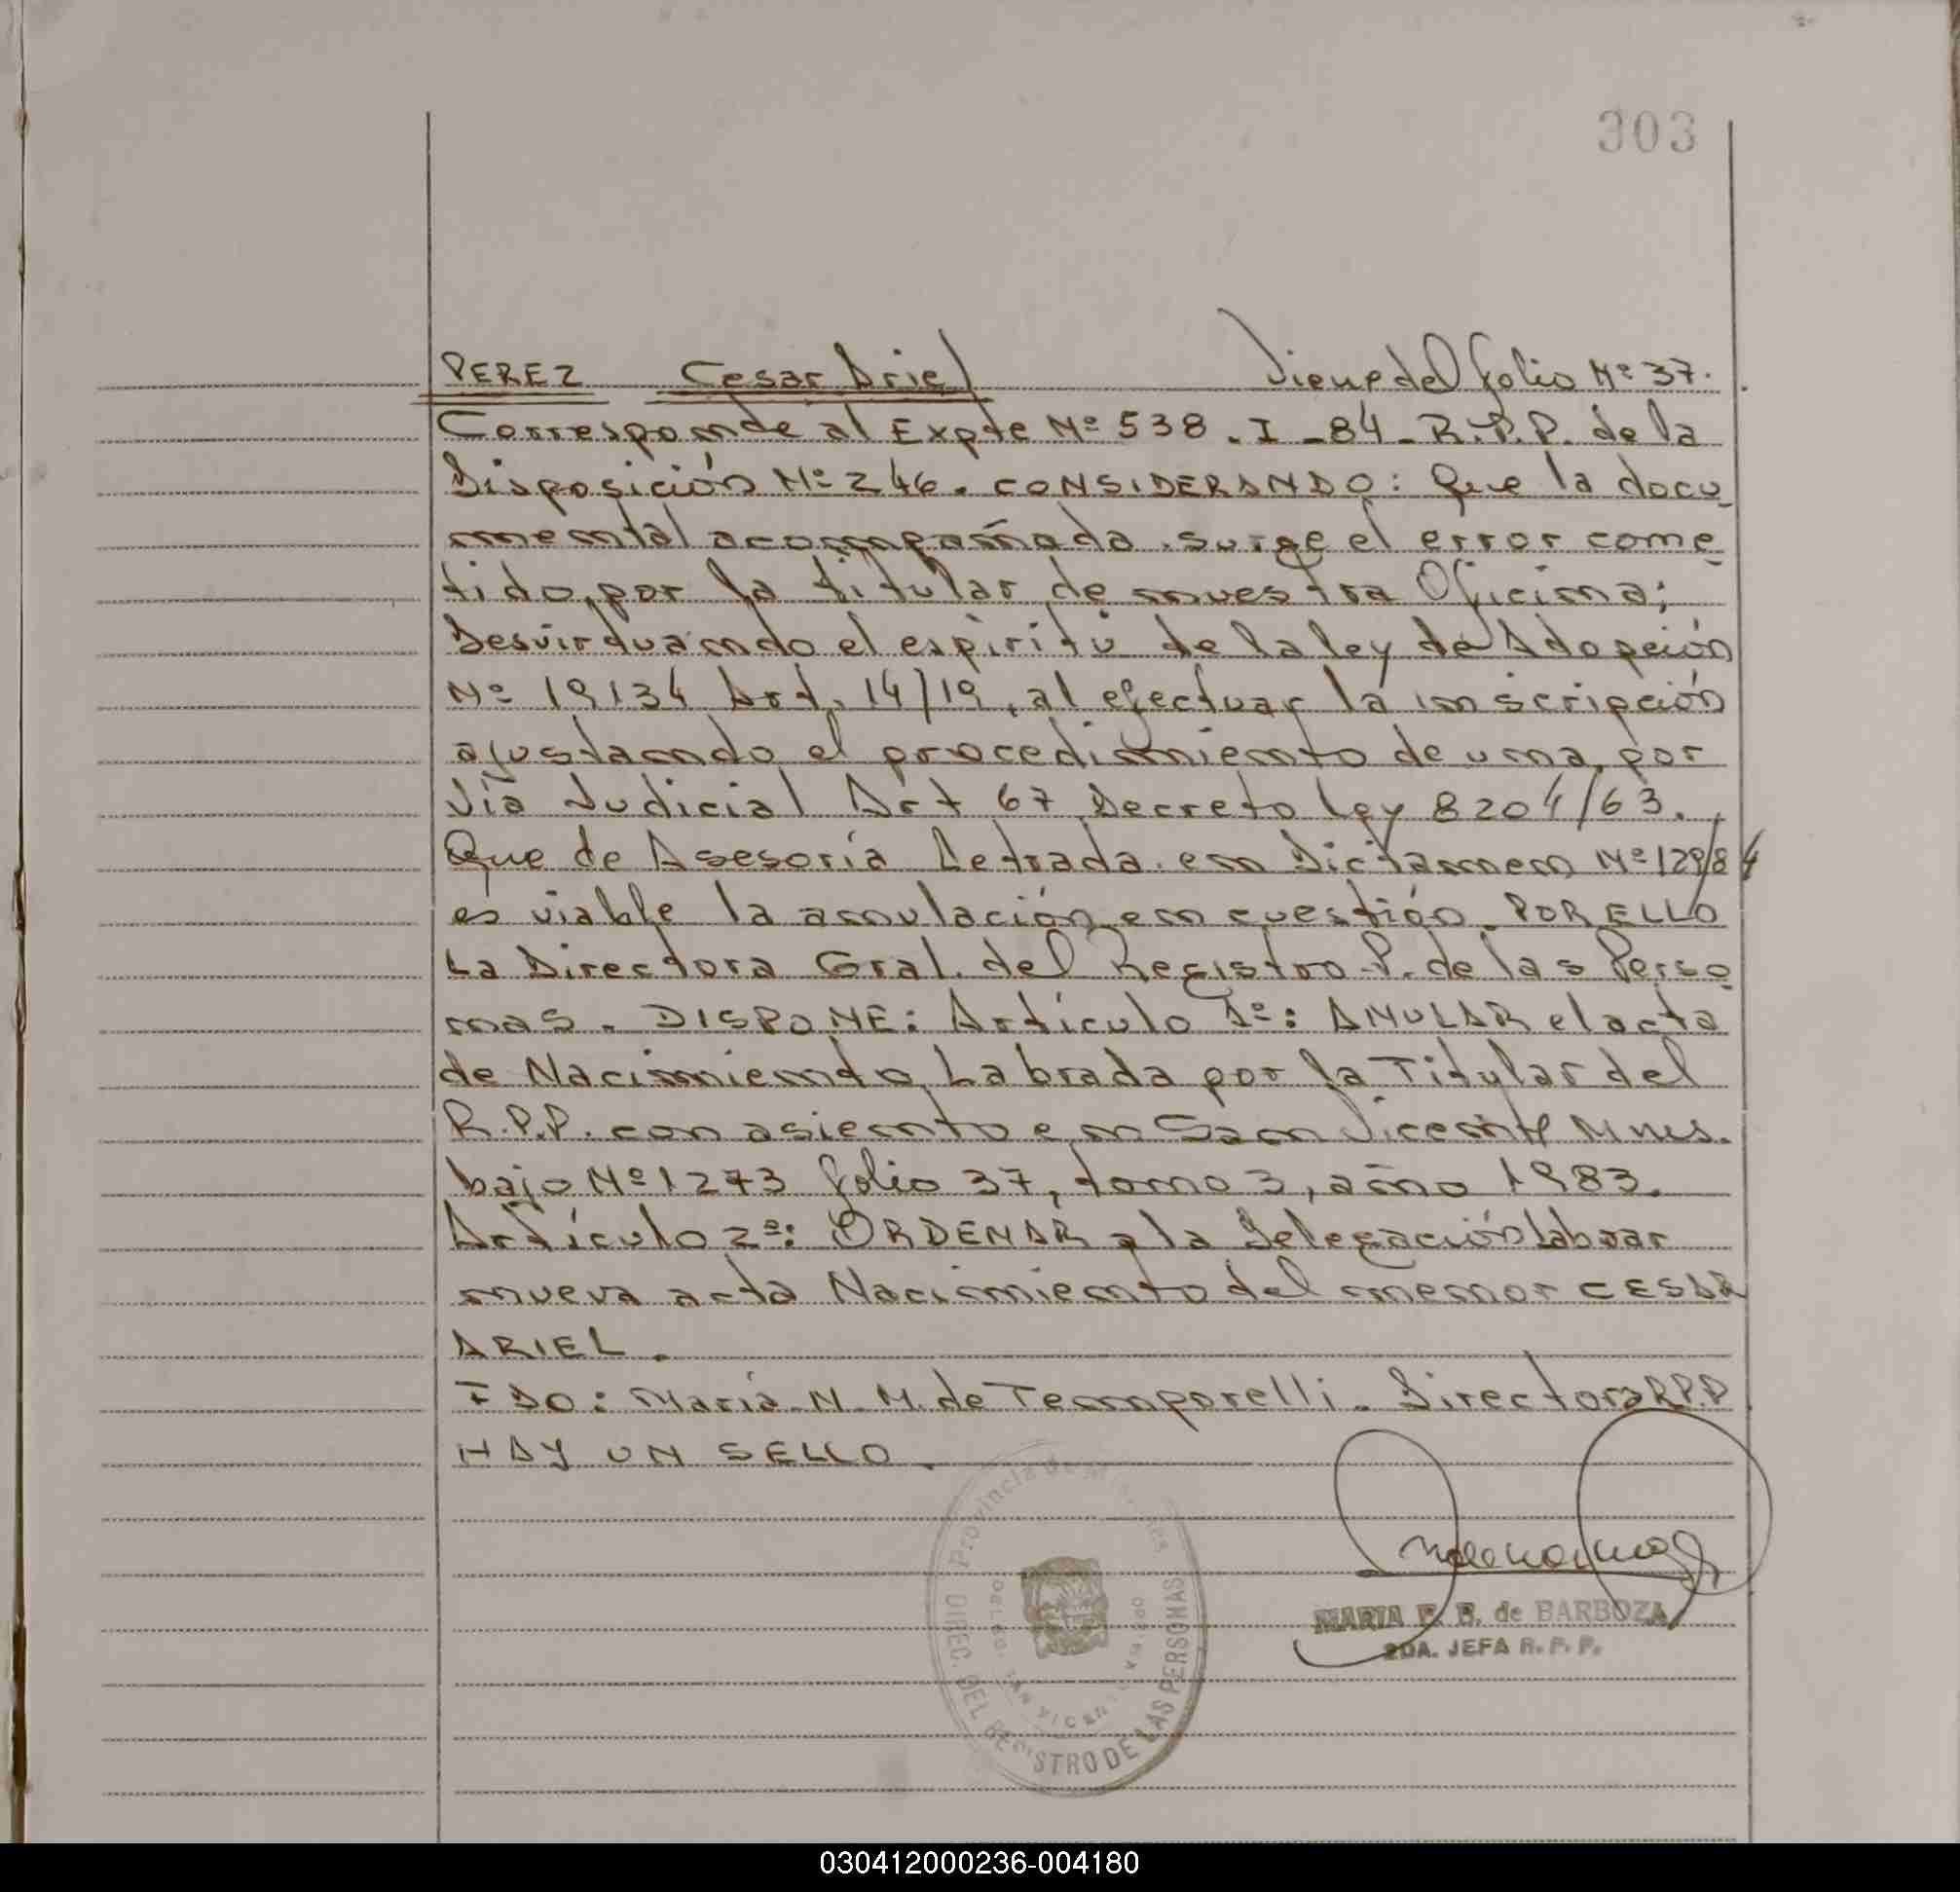 303
PEREZ Cesar Ariel Viene del folio Nº 37.
Corresponde al Expte Nº 538. I - 84 - R.P.P. de la
Disposición Nº 246. CONSIDERANDO: Que la docu
mental acompañada. surge el error come
tido, por la titular de nuestra Oficina;
Desvirtuando el espíritu de la ley de Adopción
Nº 19134 Art. 14/19, al efectuar la inscripción
ajustando el procedimiento de una, por
Vía Judicial Art 67 Decreto Ley 8204/63.
Que de Asesoría Letrada. en Dictamen Nº 129/84
es viable la anulación en cuestión. POR ELLO
La Directora Gral. del Registro. P. de las Perso
nas. DISPONE: Artículo 1º: ANULAR el acta
de Nacimiento, Labrada por la Titular del
R.P.P. con asiento en San Vicente Mnes.
bajo Nº 1273 folio 37, tomo 3, año 1983.
Artículo 2º: ORDENAR a la Delegación Labrar
nueva acta Nacimiento del menor CESAR
ARIEL.
FDO: María. N. M. de Temporelli. Directora R.P.P
HAY UN SELLO.
Provincia de Misiones
DIREC. DEL REGISTRO DE LAS PERSONAS
MARIA E. B. de BARBOZA
2DA. JEFA R. P. P.
030412000236-004180